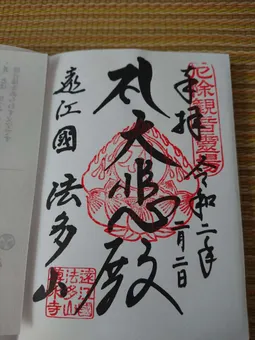 厄除觀音靈場
奉拝
令和二年
二月二日
礼大悲殿
遠江國
法多山
遠江國
法多山
尊永寺